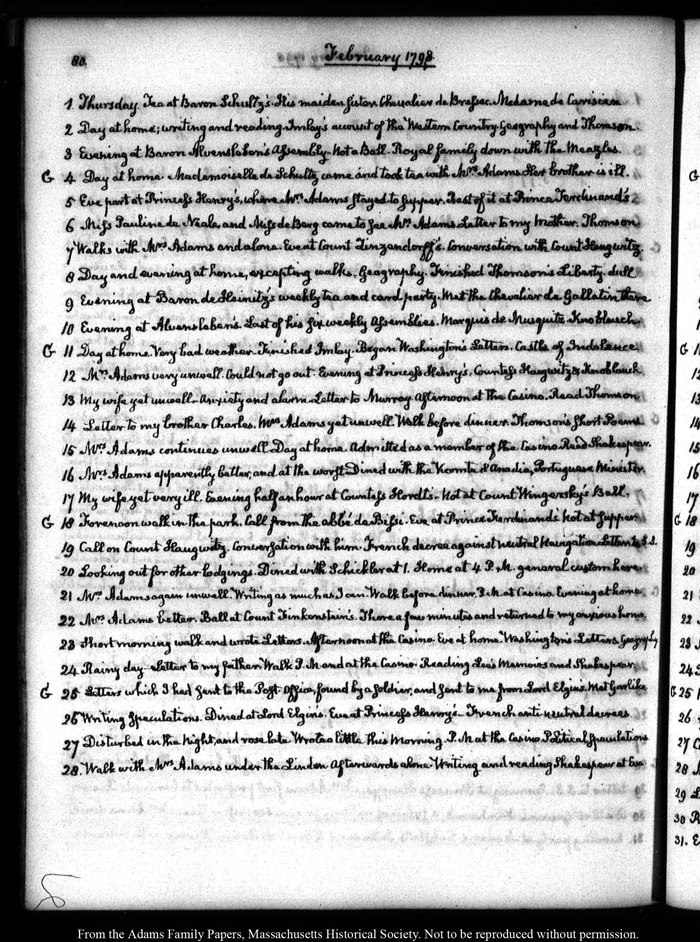 80.
February 1798
1 Thursday. Tea at Baron Schultz's. His maiden sister Chevalier de Brassac. Madame de
2 Day at home; writing and reading Imlay's account of the Western Country. Geography and Thomson.
3 Evening at Baron Alvensleben's Assembly. Not a Ball. Royal family down with the Meazles.
G 4 Day at home. Mademoiselle de Schultz came and took tea with Mrs. Adams. Her brother is ill.
5 Eve part at Princess Henry's, where Mrs. Adams stayed to supper. Rest of it at Prince Ferdinand's
6 Miss Pauline de Neale, and Miss de Berg came to see Mrs. Adams. Letter to my Mother. Thomson
7 Walks with Mrs. Adams and alone. Eve at Count Zinzendorff's. Conversation with Count Haugwitz.
8 Day and evening at home, excepting walks. Geography. Finished Thomson's Liberty. dull
9 Evening at Baron de Heinitz's weekly tea and card party. Met the Chevalier de Gallatin there
10 Evening at Alvensleben's. Last of his six weekly Assemblies. Marquis de Musquitz. Knoblauch
G 11 Day at home. Very bad weather. Finished Imlay. Began Washington's Letters. Castle of Indolence
12 Mrs. Adams very unwell. Could not go out. Evening at Princess Henry's. Countess Haugwitz & Knoblauch
13 My wife yet unwell. Anxiety and alarm. Letter to Murray. Afternoon at the Casino. Read Thomson
14 Letter to my brother Charles. Mrs. Adams yet unwell. Walk before dinner. Thomson's Short Poems
15 Mrs. Adams continues unwell. Day at home. Admitted as a member of the Casino. Read Shakespear.
16 Mrs. Adams apparently better, and at the worst. Dined with the Vcomte d'Anadia, Portuguese Minister.
17 My wife yet very ill. Evening half an hour at Countess Hordt's. Not at Count Wingersky's Ball.
G 18 Forenoon walk in the park. Call from the abbé de Bissi. Eve at Prince Ferdinand's. Not at supper
19 Call on Count Haugwitz. Conversation with him. French decree against neutral Navigation. Letter to S.S.
20 Looking out for other lodgings. Dined with Schickler at 1. Home at 4 P.M. general custom here
21 Mrs. Adams again unwell. Writing as much as I can. Walk before dinner. P.M. at Casino. Evening at home
22 Mrs. Adams better. Ball at Count Finkenstein's. There a few minutes and returned to my anxious home
23 Short morning walk and wrote Letters. Afternoon at the Casino. Eve at home. Washington's Letters. Geography
24 Rainy day. Letter to my father. Walk P.M. and at the Casino. Reading Lee's Memoirs and Shakespear
G 25 Letters which I had sent to the Post-Office, found by a soldier, and sent to me from Lord Elgin's. Met Garlike
26 Writing Speculations. Dined at Lord Elgin's. Eve at Princess Henry's. French anti neutral decrees
27 Disturbed in the Night, and rose late. Wrote a little this Morning. P.M. at the Casino. Political Speculations
28 Walk with Mrs. Adams under the Linden. Afterwards alone. Writing and reading Shakespear at Eve
From the Adams Family Papers, Massachusetts Historical Society. Not to be reproduced without permission.